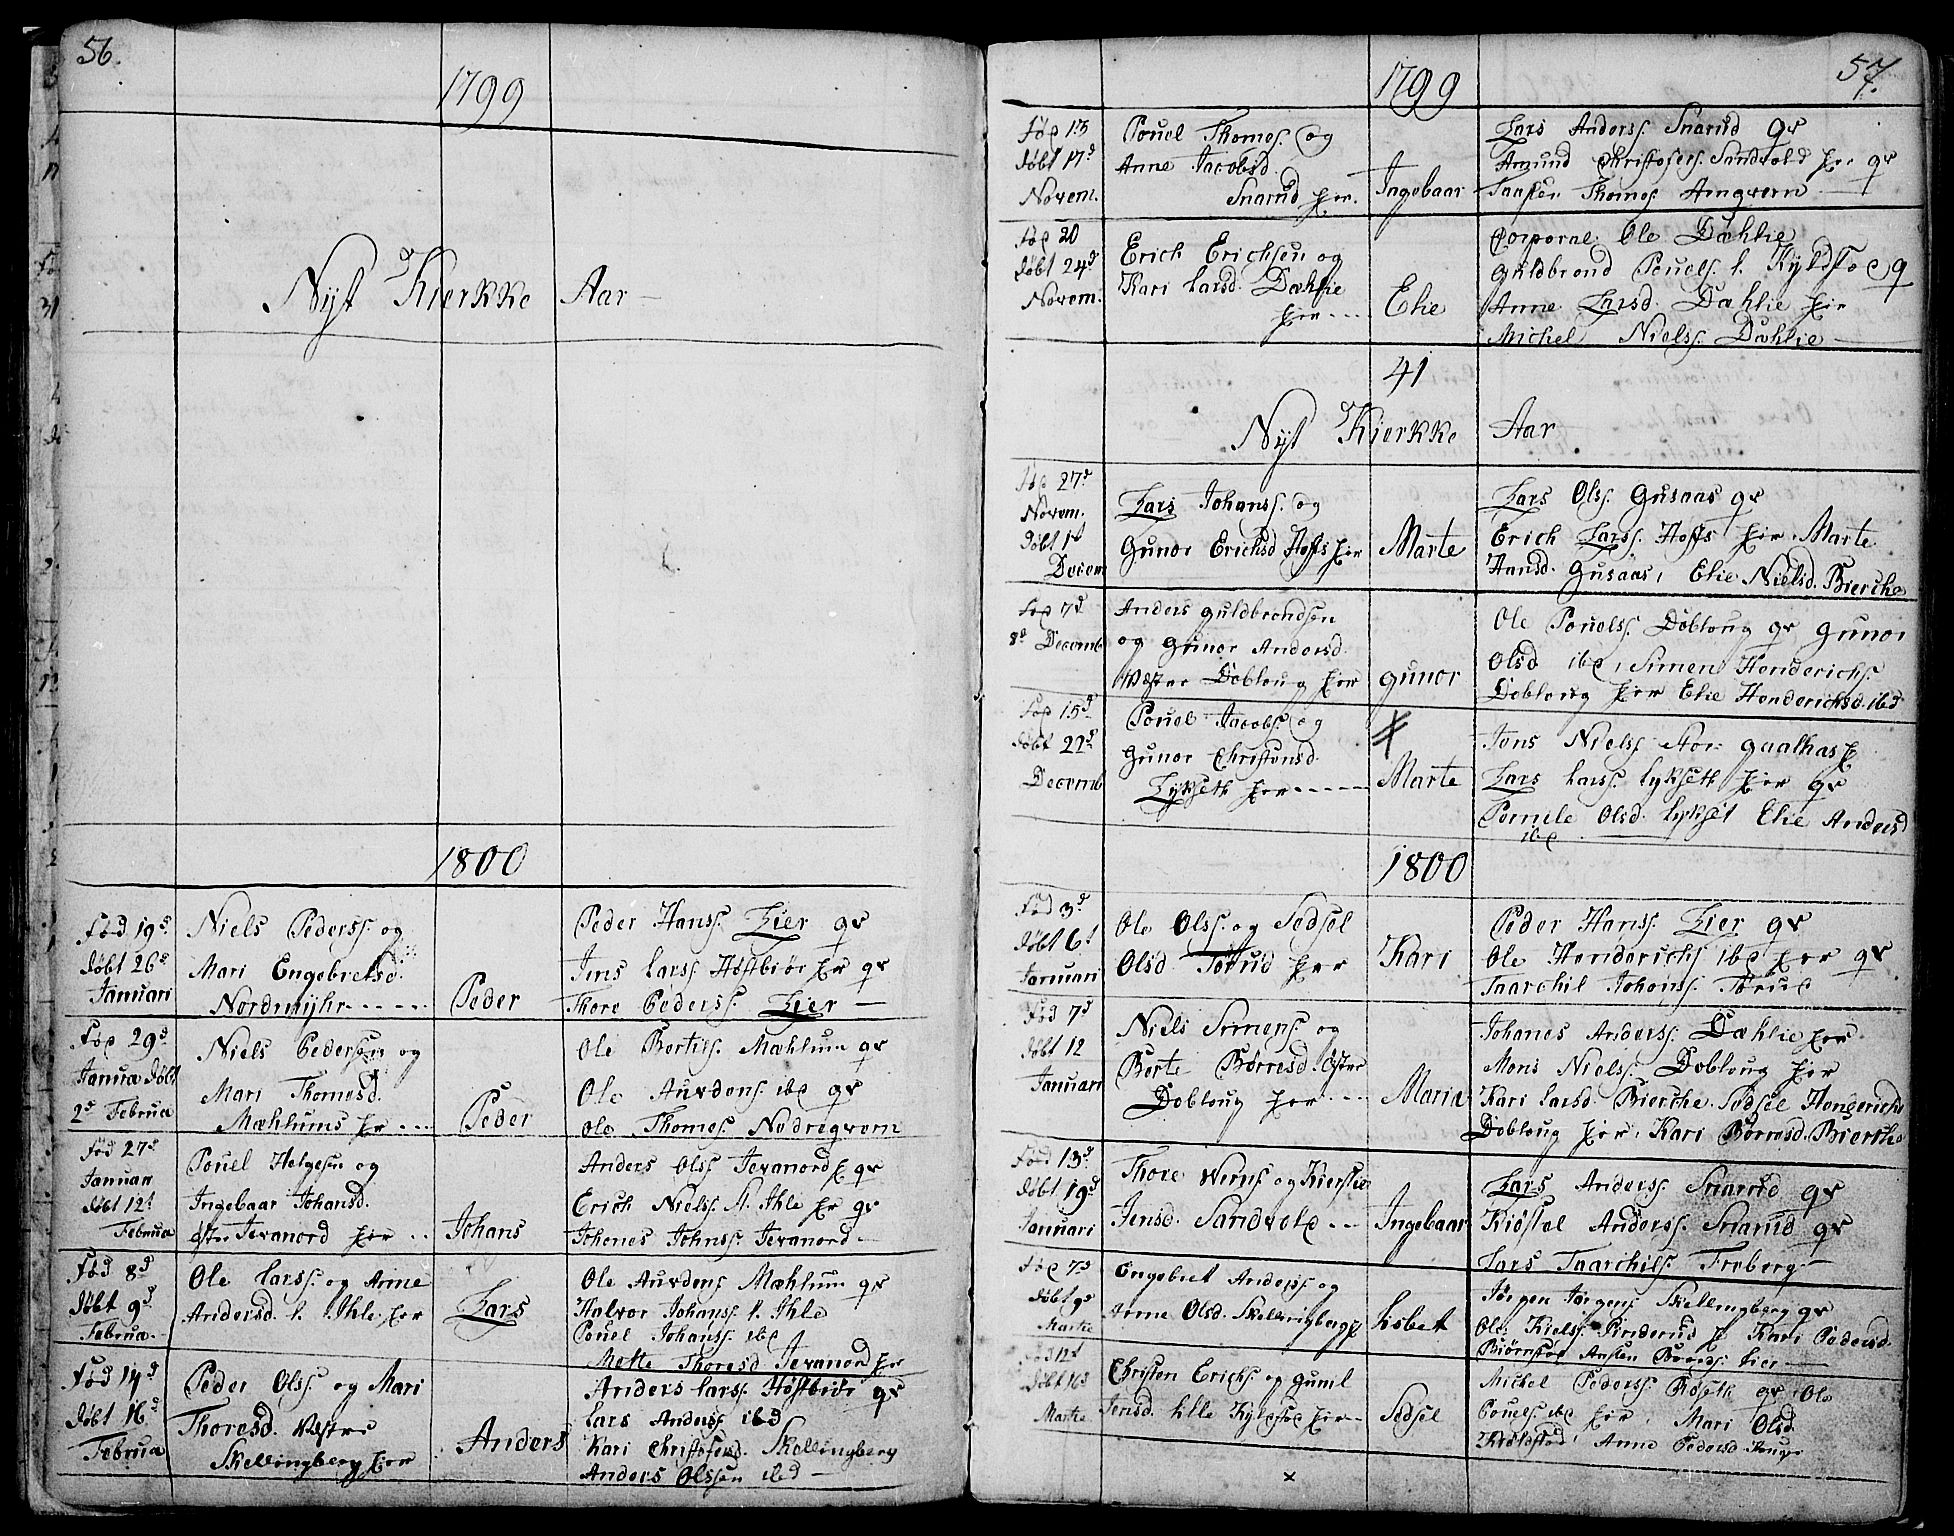 56.
1799
Nyt Kierkke Aar
1800
Fød 19d
døbt 26d
Januari
Niels Pederss. og
Mari Engebretsd.
Nordmyhr
Peder
Peder Hanss. Lier qr
Jens Larss. Høstbiør hr qr
Thore Pederss. Lier
Fød 29d
Janua døbt
2d Februa
Niels Pedersen og
Mari Thomesd.
Mæhlums hr
Peder
Ole Bertils. Mæhlum qr
Ole Auvdens. ibd qr
Ole Thomes. Nedreqvern
Fød 27d
Januari
døbt 12t
Februa
Pouel Helgesen og
Ingebaar Johansd.
øster Jevanord her
Johans
Anders Olss. Jevanord h qr
Erich Nielss. St. Ihle hr qr
Johanes Johnss. Jevanord
Fød 8d
døbt 9d
Februa.
Ole Larss. og Anne
Andersd. l. Ihle her
Lars
Ole Auvdens Mæhlum qr
Halvor Johans. l. Ihle
Pouel Johanss. ibd
Mette Thoresd Jevanord hr
Fød 14d
døbt 16d
Februa
Peder Olss. og Mari
Thoresd. Væstre
Skellingberg her
Anders
Anders Larss. Høstbiør qr
Lars Anderss ibd
Kari Christofersd. Skellingberg
Anders Olssen ibd
57.
1799
Fød 13
døbt 17d
Novem.
Pouel Thomes. og
Anne Jacobsd.
Snarud her.
Ingebaar
Lars Anderss. Snarud qr
Amund Christofers. Sandvold her qr
Taasten Thomes Amqvern
Fød 20
døbt 24d
Novem.
Erich Erichsen og
Kari Larsd. Dæhlie
her
Elie
Corporal Ole Dæhlie
Guldbrond Pouels. l. Kyldstod q
Anne Larsd. Dæhlie her
Michel Nielss. Dæhlie
41
Nyt Kierkke Aar
Fød 27d
Novem.
døbt 1t
Decem
Lars Johanss. og
Gunor Erichsd Hoffs her
Marte
Lars Olss. Gusaas qr
Erich Larss. Hoffs her, Marte
Hansd. Gusaas, Elie Nielsd. Bierche
Fød 7d
8d Decemb
Anders Guldbrondsen
og Gunor Andersd.
Væster Dobloug her
Gunor
Ole Pouelss. Dobloug qr Gunor
Olsd ibd, Simen Henderichs
Dobloug her Elie Henderichsd. ibd
Fød 15d
døbt 22d
Decemb
Pouel Jacobs. og
Gunor Christensd.
Lykseth her
Marte
Jens Nielss. Stor gaalhas h
Lars Larss. lykseth her qr
Pernile Olsd. lykset Elie Andersd
ibd
1800
Fød 3d
døbt 6t
Januari
Ole Olss. og Sedsel
Olsd. Tørud her
Kari
Peder Hanss. Lier qr
Ole Henderichs ibd her qr
Taarchil Johans. Tørud
Fød 7d
døbt 12
Januari
Niels Simens. og
Berte Børresd. Øster
Dobloug her
Maria
Johanes Anderss. Dæhlie her
Mons Nielss. Dobloug her
Kari Larsd. Bierche. Sedsel Hengerichs
Dobloug her, Kari Børresd. Bierche
Fød 13d
døbt 19d
Januari
Thore Werns og Kierstie
Jensd. Sandvold
Ingebaar
Lars Anderss. Snarud qr
Kiøstel Anderss. Snarud qr
Lars Taarchilss. Freberg
Fød 7d
døbt 9d
Martie
Engebret Anderss og
Anne Olsd. Skellingberg h
Lisbet
Jørgen Jørgens. Skellingberg qr
Ole Kielss. Pinderud h Kari Pedersd.
Biørnstad Lier
Fød 12t
døbt 16d
Martie
Christen Erichs og Gunil
Jensd. Lille Kyldstod her
Sedsel
Michel Pederss. Bøseth qr, Ole
Pouels ibd her, Mari Olsd.
Anne Pedersd.
x